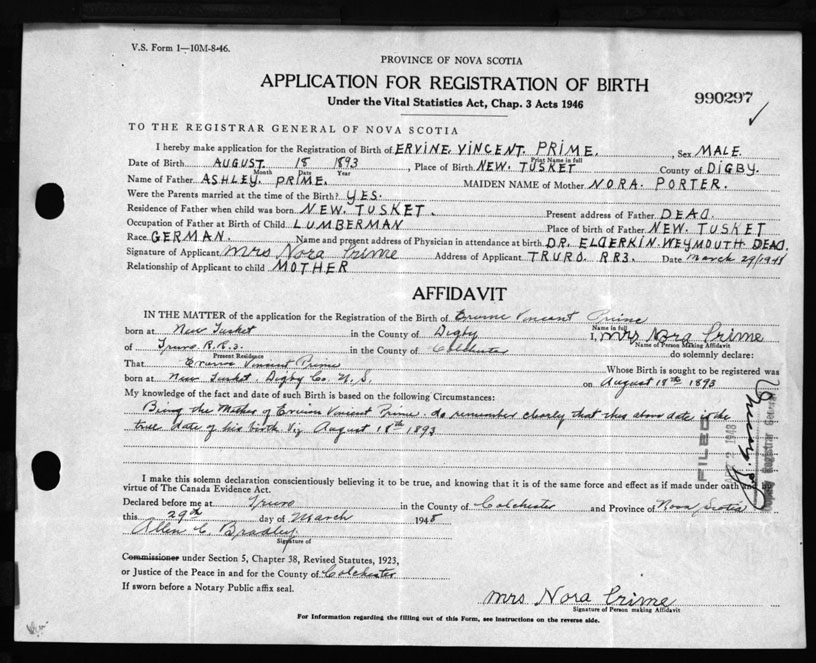 V.S. Form 1—10M-8-46.
PROVINCE OF NOVA SCOTIA
APPLICATION FOR REGISTRATION OF BIRTH
Under the Vital Statistics Act, Chap. 3 Acts 1946
990297
TO THE REGISTRAR GENERAL OF NOVA SCOTIA
I hereby make application for the Registration of Birth of ERVINE VINCENT PRIME. , Sex MALE.
Print Name in full
Date of Birth AUGUST 18 1893 , Place of Birth NEW. TUSKET County of DIGBY.
Month Date Year
Name of Father ASHLEY. PRIME. MAIDEN NAME of Mother NORA. PORTER.
Were the Parents married at the time of the Birth? YES.
Residence of Father when child was born NEW. TUSKET. Present address of Father DEAD.
Occupation of Father at Birth of Child LUMBERMAN Place of birth of Father NEW. TUSKET
Race GERMAN. Name and present address of Physician in attendance at birth DR. ELDERKIN. WEYMOUTH DEAD.
Signature of Applicant Mrs Nora Prime Address of Applicant TRURO. RR3. Date March 29/1948
Relationship of Applicant to child MOTHER
AFFIDAVIT
IN THE MATTER of the application for the Registration of the Birth of Ervine Vincent Prime
Name in full
born at New Tusket in the County of Digby I, Mrs Nora Prime
Name of Person Making Affidavit
of Truro R.R.3. in the County of Colchester do solemnly declare:
Present Residence
That Ervine Vincent Prime Whose Birth is sought to be registered was
born at New Tusket. Digby Co. N.S. on August 18th 1893
My knowledge of the fact and date of such Birth is based on the following Circumstances:
Being the Mother of Ervine Vincent Prime. do remember clearly that this above date is the
true date of his birth Viz August 18th 1893
FILED
1948
Registrar General
I make this solemn declaration conscientiously believing it to be true, and knowing that it is of the same force and effect as if made under oath and
virtue of The Canada Evidence Act.
Declared before me at Truro in the County of Colchester and Province of Nova Scotia
this 29th day of March 1948
Allen C. Bradley
Signature of
Commissioner under Section 5, Chapter 38, Revised Statutes, 1923,
or Justice of the Peace in and for the County of Colchester
If sworn before a Notary Public affix seal.
Mrs Nora Prime
Signature of Person making Affidavit
For Information regarding the filling out of this Form, see Instructions on the reverse side.